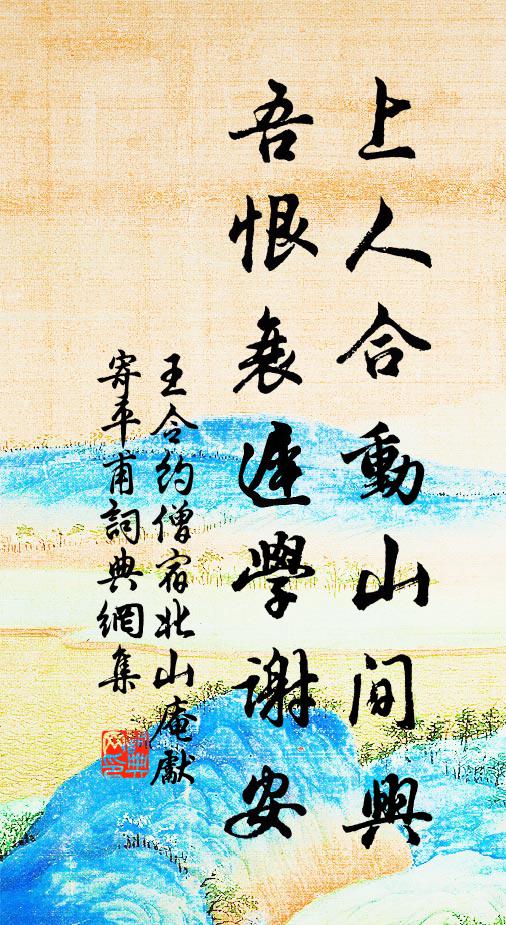 上人合動山間興
吾恨衰遲學謝安
王令約僧宿北山庵獻
寄平甫詞典網集